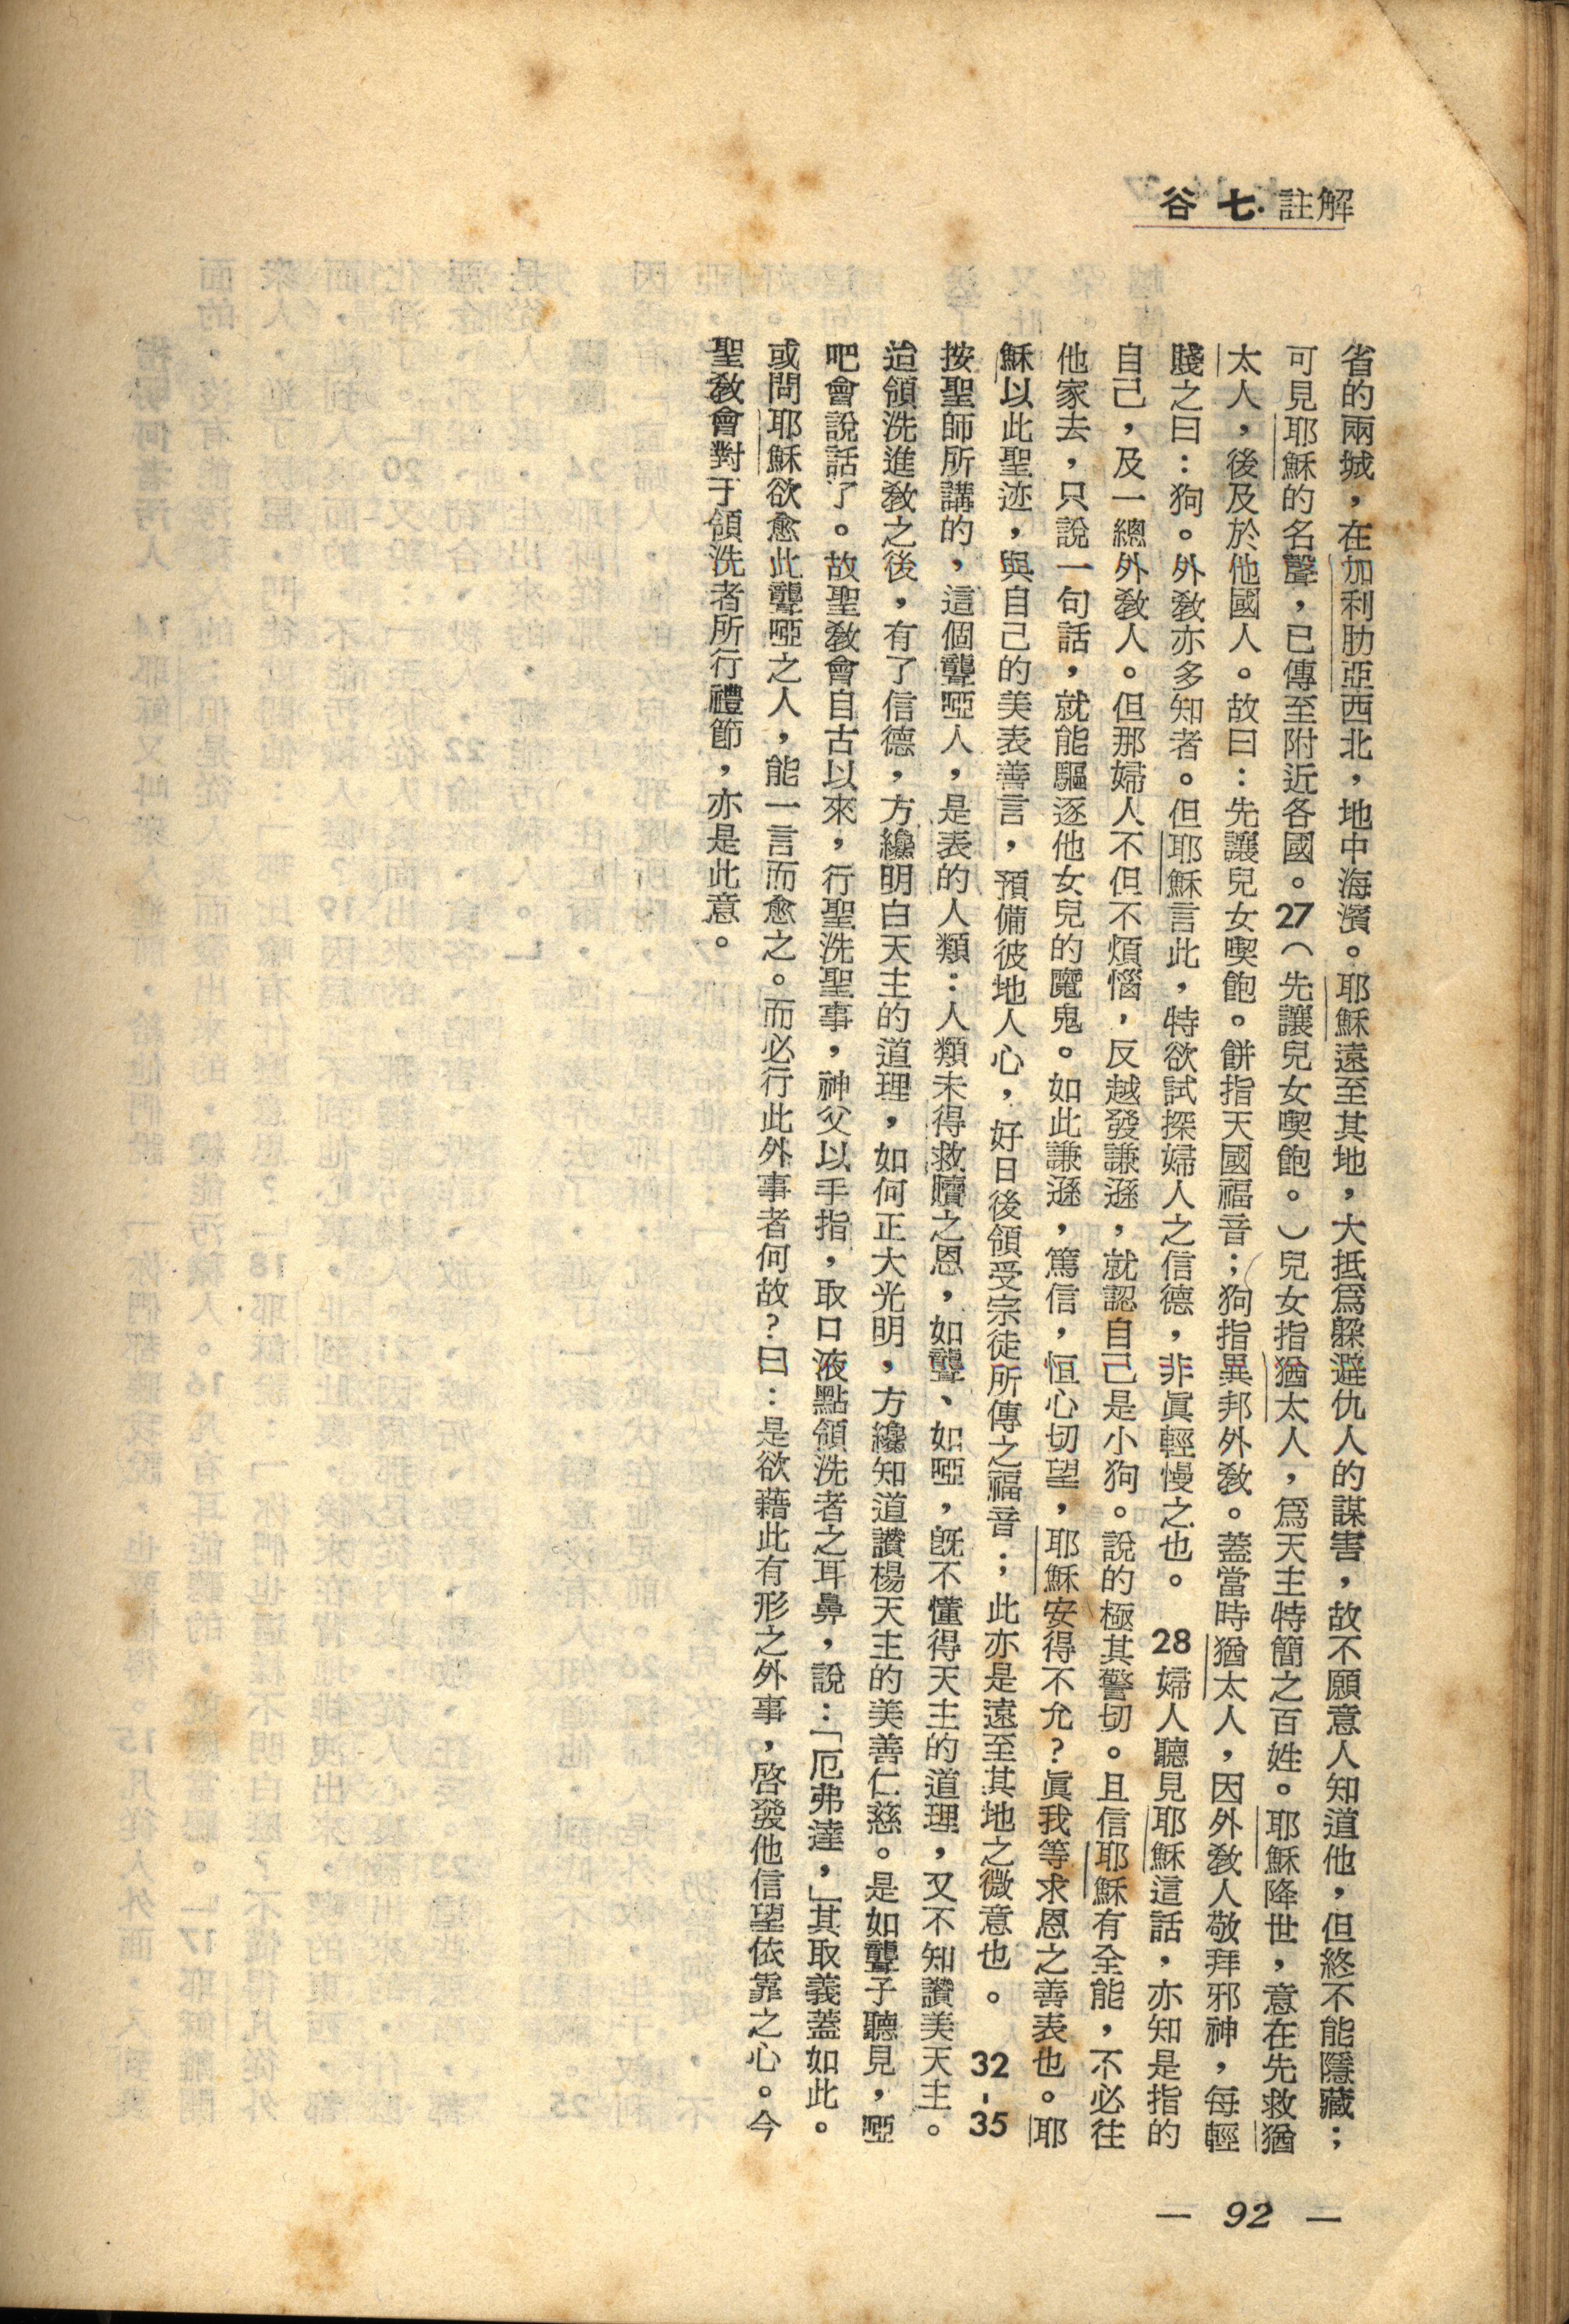 谷 七．註解
省的兩城，在加利肋亞西北，地中海濱。耶穌遠至其地，大抵爲躲避仇人的謀害，故不願意人知道他，但終不能隱藏；
可見耶穌的名聲，已傳至附近各國。27（先讓兒女喫飽。）兒女指猶太人，爲天主特簡之百姓。耶穌降世，意在先救猶
太人，後及於他國人。故曰：先讓兒女喫飽。餅指天國福音；狗指異邦外敎。蓋當時猶太人，因外敎人敬拜邪神，每輕
賤之曰：狗。外敎亦多知者。但耶穌言此，特欲試探婦人之信德，非眞輕慢之也。 28 婦人聽見耶穌這話，亦知是指的
自己，及一總外敎人。但那婦人不但不煩惱，反越發謙遜，就認自己是小狗。說的極其警切。且信耶穌有全能，不必往
他家去，只說一句話，就能驅逐他女兒的魔鬼。如此謙遜，篤信，恒心切望，耶穌安得不允？眞我等求恩之善表也。耶
穌以此聖迹，與自己的美表善言，預備彼地人心，好日後領受宗徒所傳之福音；此亦是遠至其地之微意也。 32-35
按聖師所講的，這個聾啞人，是表的人類：人類未得救贖之恩，如聾、如啞，旣不懂得天主的道理，又不知讚美天主。
迨領洗進敎之後，有了信德，方纔明白天主的道理，如何正大光明，方纔知道讚楊天主的美善仁慈。是如聾子聽見，啞
吧會說話了。故聖敎會自古以來，行聖洗聖事，神父以手指，取口液點領洗者之耳鼻，說：「厄弗達，」其取義蓋如此。
或問耶穌欲愈此聾啞之人，能一言而愈之。而必行此外事者何故？曰：是欲藉此有形之外事，啓發他信望依靠之心。今
聖敎會對于領洗者所行禮節，亦是此意。
— 92 —